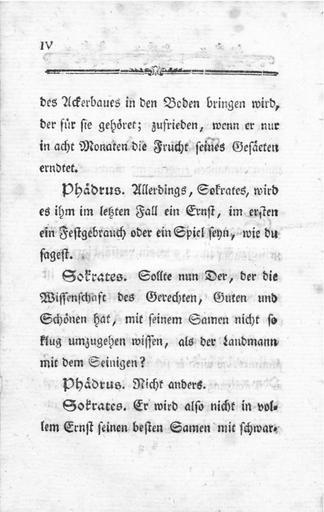 IV
des Ackerbaues in den Boden bringen wird,
der für sie gehöret; zufrieden, wenn er nur
in acht Monaten die Frucht seines Gesäeten
erndtet.
Phädrus. Allerdings, Sokrates, wird
es ihm im letzten Fall ein Ernst, im ersten
ein Festgebrauch oder ein Spiel seyn, wie du
sagest.
Sokrates. Sollte nun Der, der die
Wissenschaft des Gerechten, Guten und
Schönen hat, mit seinem Samen nicht so
klug umzugehen wissen, als der Landmann
mit dem Seinigen?
Phädrus. Nicht anders.
Sokrates. Er wird also nicht in vol-
lem Ernst seinen besten Samen mit schwar-